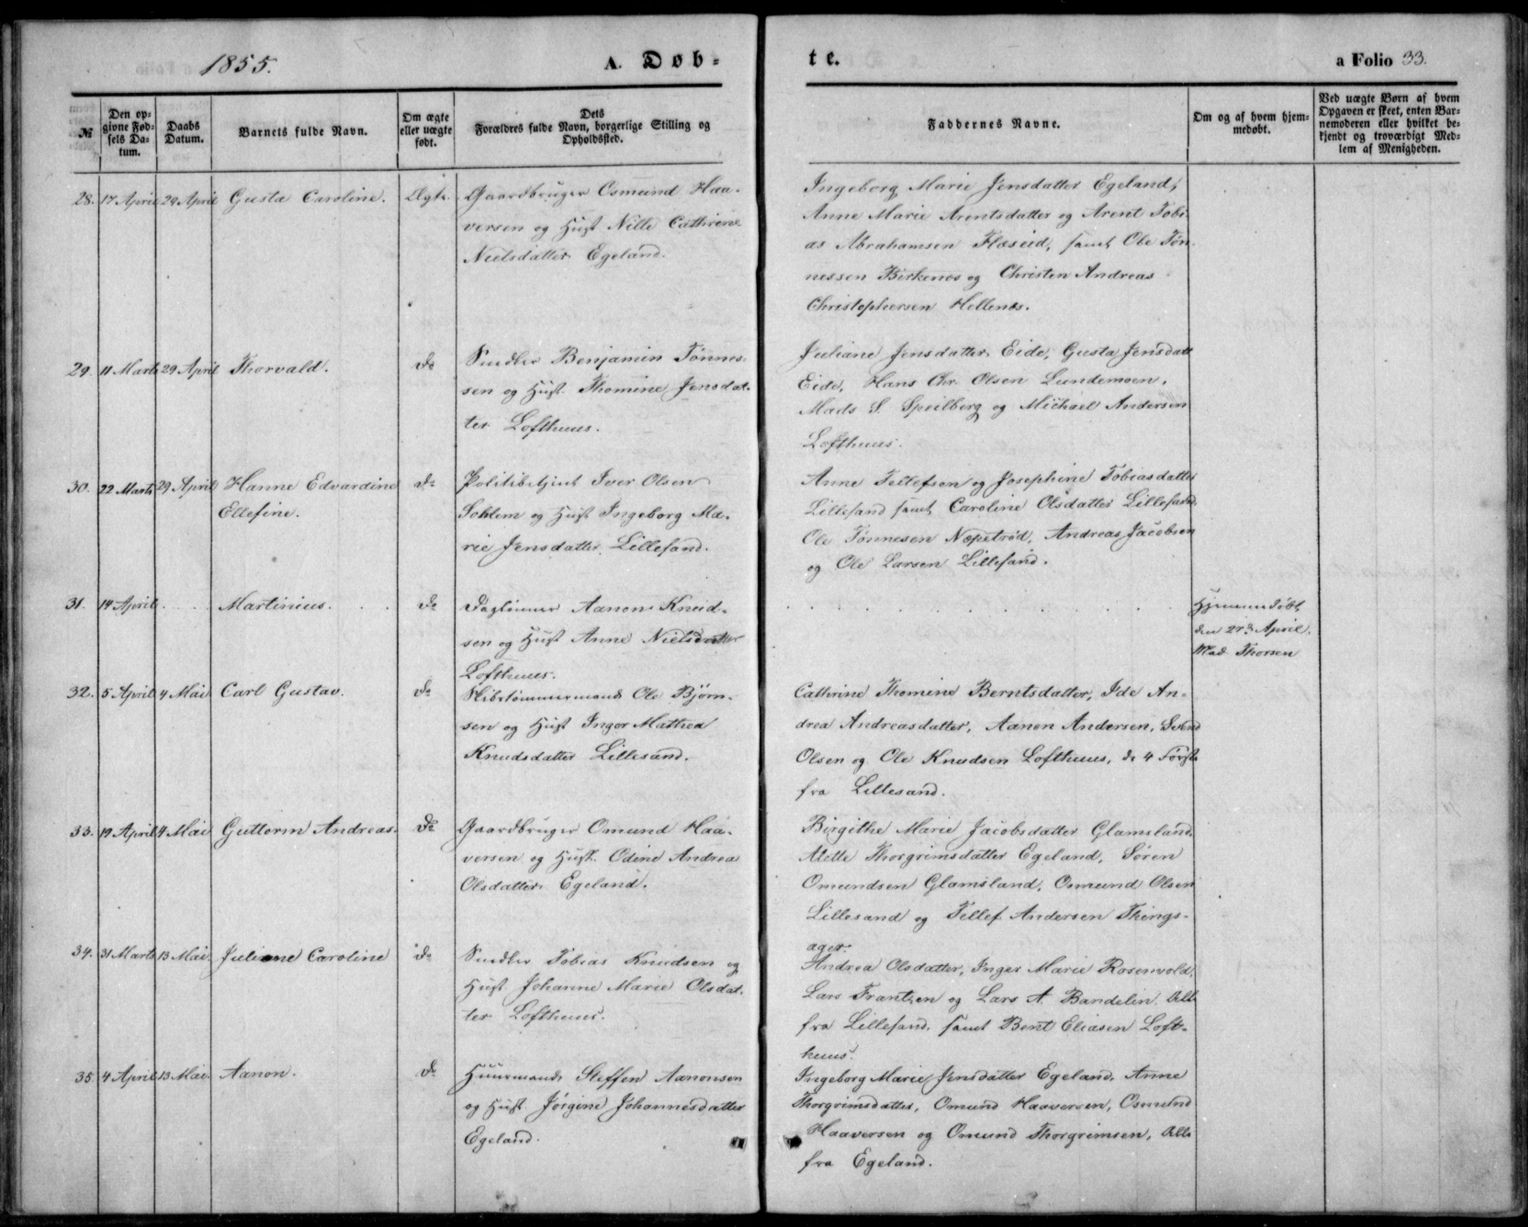 1855.
A. Døb-
te.
a Folio 33.
№
Den op-
givne Fød-
sels Da-
tum.
Daabs
Datum.
Barnets fulde Navn.
Om ægte
eller uægte
født.
Dets
Forældres fulde Navn, borgerlige Stilling og
Opholdssted.
Faddernes Navne.
Om og af hvem hjem-
medøbt.
Ved uægte Børn af hvem
Opgaven er skeet, enten Bar-
nemoderen eller hvilket be-
kjendt og troværdigt Med-
lem af Menigheden.
28. 17 April 29 April Gusta Caroline. Ægte Gaardbruger Osmund Haa-
versen og Hust Nille Cathrine
Nielsdatter Egeland.
Ingeborg Marie Jensdatter Egeland,
Anne Marie Arentsdatter og Arent Tobi-
as Abrahamsen Flaseid, samt Ole Tøn-
nessen Birkenes og Christen Andreas
Christophersen Hellenes.
29. 11 Marts 29 April Thorvald. do Snedker Benjamin Tønnes-
sen og Hust. Thomine Jensdat-
ter Lofthuus.
Juliane Jensdatter Eide, Gusta Jensdatt
Eide, Hans Chr. Olsen Lundemoen,
Mads S. Speilberg og Michael Andersen
Lofthuus.
30. 22 Marts 29 April Hanne Edvardine do Politibetjent Iver Olsen
Ellefine.
Sohlem og Hust Ingeborg Ma-
rie Jensdatter Lillesand.
Anne Tellefsen og Josephine Tobiasdatter
Lillesand samt Caroline Olsdatter Lillesand,
Ole Tønnesen Næpetrød, Andreas Jacobsen
og Ole Larsen Lillesand.
31. 14 April Martinius. do Dagleiner Aanon Knud-
sen og Hust Anne Nielsdatter
Lofthuus.
Hjemmedøbt
den 27de April.
Mad. Thorsen
32. 5 April 4 Mai Carl Gustav. do Skibstømmermand Ole Bjørn-
sen og Hust Inger Mathea
Knudsdatter Lillesand.
Cathrine Thomine Berntsdatter, Ide An-
drea Andreasdatter, Aanon Andersen, Svend
Olsen og Ole Knudsen Lofthuus, de 4 Første
fra Lillesand.
33. 19 April 4 Mai Guttorm Andreas. do Gaardbruger Omund Haa-
versen og Hust. Odine Andrea
Olsdatter Egeland.
Birgithe Marie Jacobsdatter Glamsland,
Alette Thorgrimsdatter Egeland, Søren
Omundsen Glamsland, Osmund Olsen
Lillesand og Tellef Andersen Things-
ager.
34. 31 Marts 13 Mai Juliane Caroline do Snedker Tobias Knudsen og
Hust Johanne Marie Olsdat-
ter Lofthuus.
Andrea Olsdatter, Inger Marie Rosenvold,
Lars Frantzen og Lars A. Bandelin Alle
fra Lillesand, samt Bent Eliasen Loft-
huus.
35. 4 April 13 Mai Aanon. do Huusmand Steffen Aanonsen
og Hust Jørgine Johannesdatter
Egeland.
Ingeborg Marie Jensdatter Egeland, Anne
Thorgrimsdatter, Omund Haaversen, Osmund
Haaversen og Omund Thorgrimsen, Alle
fra Egeland.